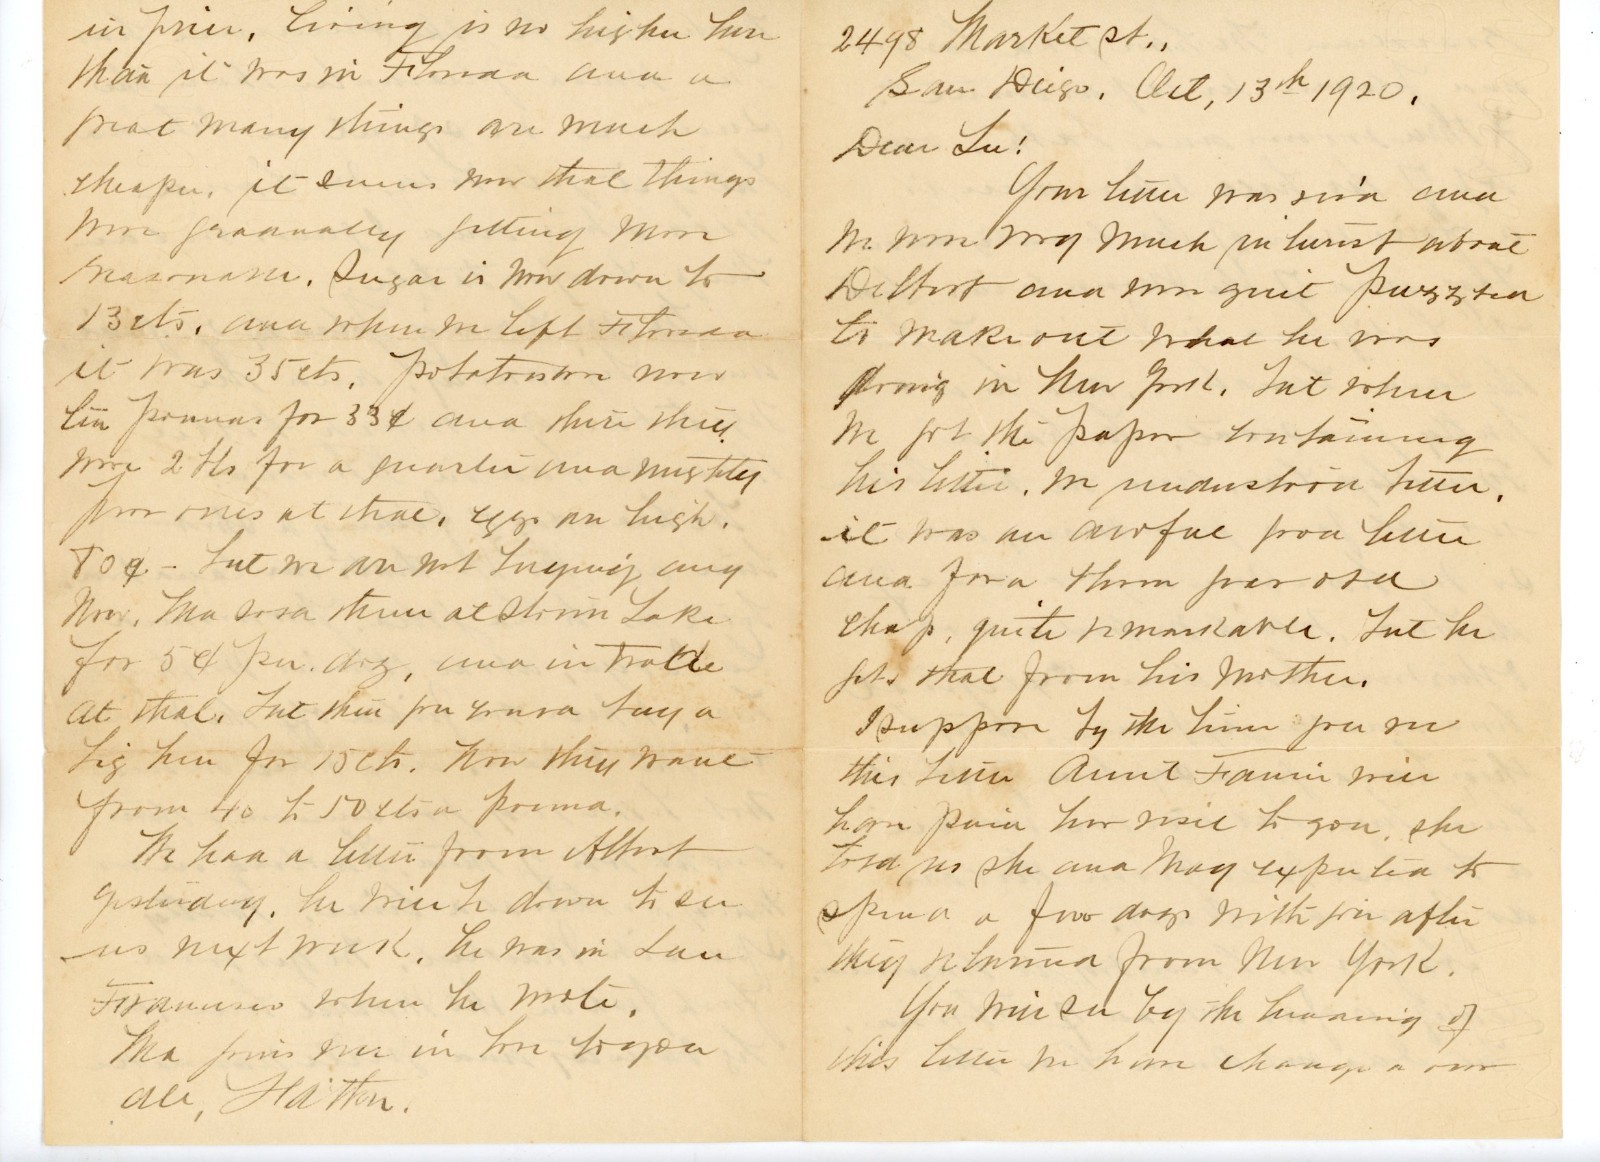 2498 Market St.,
San Diego. Oct, 13th 1920.
Dear Lu!
Your letter was rec'd and
we were very much interest about
Delbert and were quit puzzled
to make out what he was
doing in New York. but when
we got the paper containing
his letter. we understood better.
it was an awful good letter
and for a three year old
chap, quite remarkable. but he
gets that from his Mother.
I suppose by the time you see
this letter Aunt Fannie will
have paid her visit to you, she
told us she and May expected to
spend a few days with you after
they returned from New York.
You will see by the heading of
this letter we have changed our
in price. living is no higher here
than it was in Florida and a
great many things are much
cheaper. it seems now that things
were gradually getting more
reasonable. Sugar is now down to
13 cts. and when we left Florida
it was 35 cts. potatoes are now
ten pounds for 33¢ and there they
were 2 lbs for a quarter and mighty
poor ones at that. eggs are high.
80¢ - but we are not buying any
now. Ma sold them at Storm Lake
for 5¢ per. doz, and in trade
at that. but then you could buy a
big hen for 15 cts. now they want
from 40 to 50 cts a pound.
We had a letter from Albert
yesterday. he will be down to see
us next week. he was in San
Francisco when he wrote.
Ma joins me in love to you
all, Father.